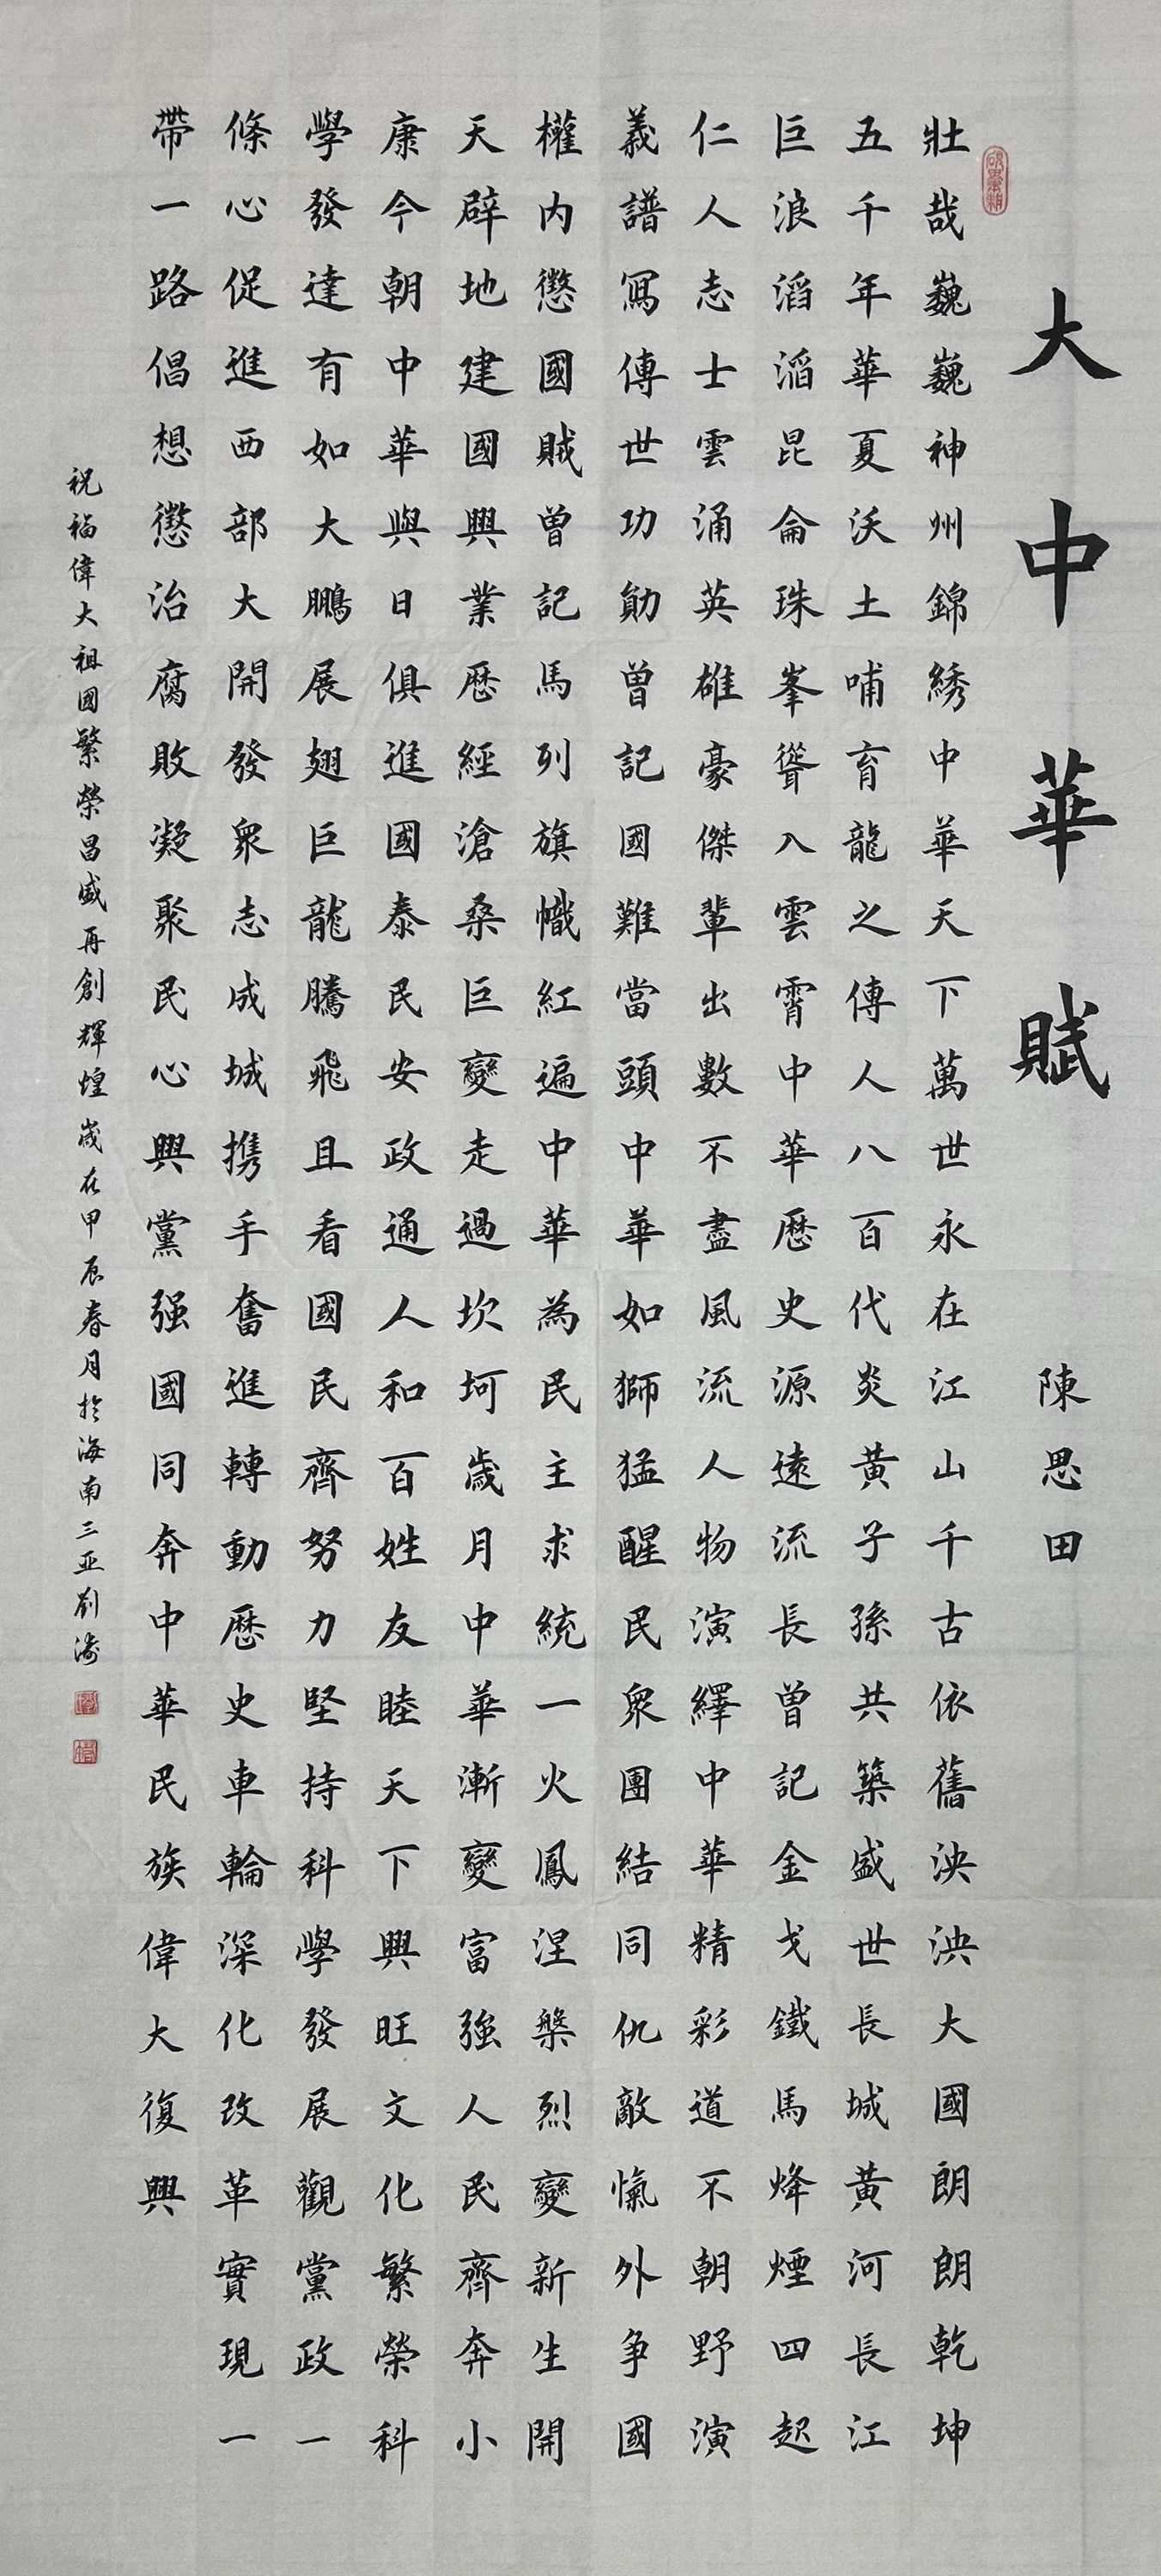 大中華賦 陳思田
壯哉巍巍神州錦綉中華天下萬世永在江山千古依舊泱泱大國朗朗乾坤
五千年華夏沃土哺育龍之傳人八百代炎黃子孫共築盛世長城黃河長江
巨浪滔滔昆侖珠峯聳入雲霄中華歷史源遠流長曾記金戈鐵馬烽煙四起
仁人志士雲涌英雄豪傑輩出數不盡風流人物演繹中華精彩道不朝野演
義譜寫傳世功勛曾記國難當頭中華如獅猛醒民眾團結同仇敵愾外爭國
權內懲國賊曾記馬列旗幟紅遍中華為民主求統一火鳳涅槃烈變新生開
天辟地建國興業歷經滄桑巨變走過坎坷歲月中華漸變富強人民齊奔小
康今朝中華與日俱進國泰民安政通人和百姓友睦天下興旺文化繁榮科
學發達有如大鵬展翅巨龍騰飛且看國民齊努力堅持科學發展觀黨政一
條心促進西部大開發眾志成城携手奮進轉動歷史車輪深化改革實現一
帶一路倡想懲治腐敗凝聚民心興黨强國同奔中華民族偉大復興
祝福偉大祖國繁榮昌盛再創輝煌歲在甲辰春月於海南三亞劉濤